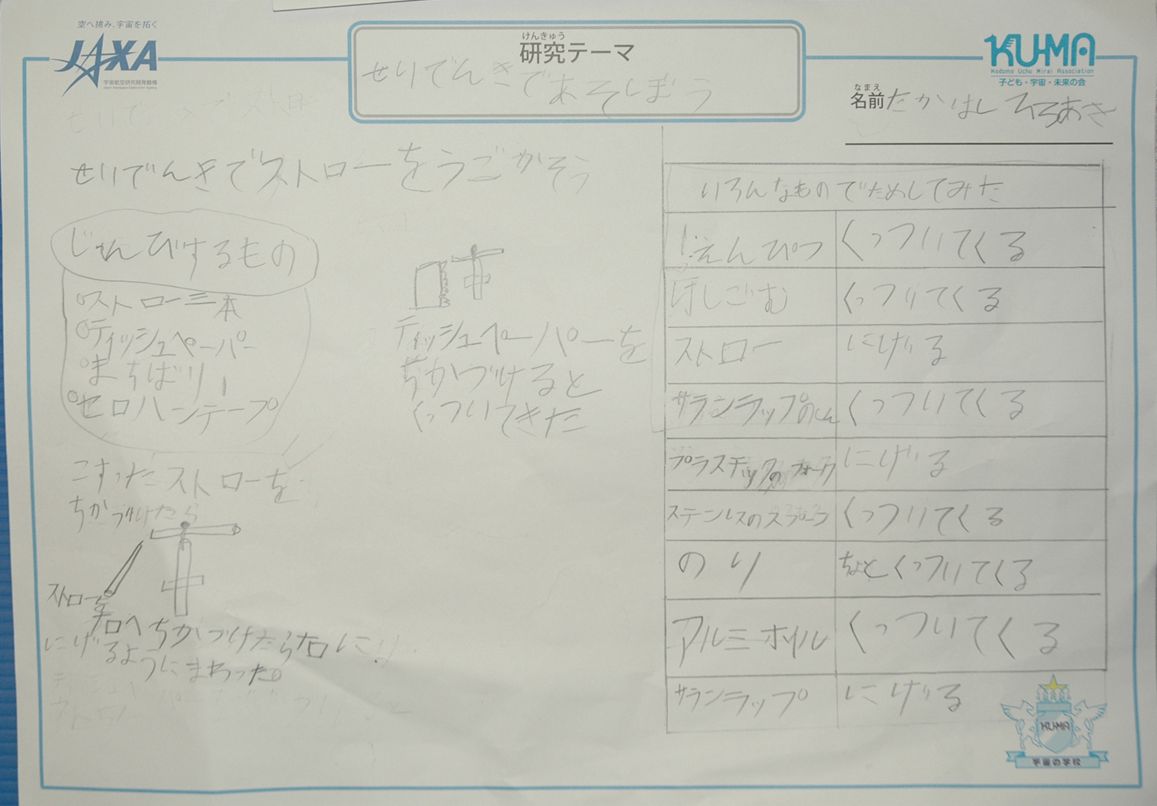 空へ挑み、宇宙を拓く
JAXA
宇宙航空研究開発機構
Japan Aerospace Exploration Agency
けんきゅう
研究テーマ
せいでんきであそぼう
KU-MA
Kodomo Uchu Mirai Association
子ども・宇宙・未来の会
なまえ
名前 たかはし ひろあき
せいでんきでストローをうごかそう
じゅんびするもの
○ストロー三本
○ティッシュペーパー
○まちばり1
○セロハンテープ
ティッシュペーパーを
ちかづけると
くっついてきた
こすったストローを
ちかづけたら
ストロー
右へちかづけたら右に
にげるようにまわった。
いろんなものでためしてみた
えんぴつ くっついてくる
けしごむ くっついてくる
ストロー にげる
サランラップのしん くっついてくる
プラスチックのフォーク にげる
ステンレスのスプーン くっついてくる
のり ちょとくっついてくる
アルミホイル くっついてくる
サランラップ にげる
KU-MA
宇宙の学校